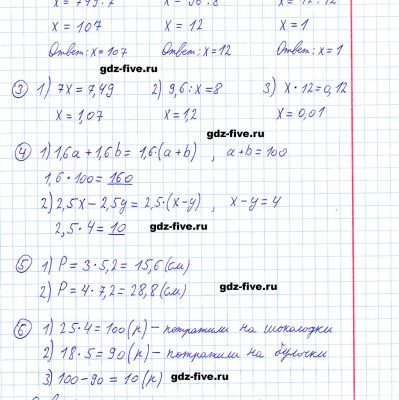 x = 107 x = 12 x = 1
Ответ: x = 107 Ответ: x = 12 Ответ: x = 1
gdz-five.ru
3 1) 7x = 7,49 2) 9,6 : x = 8 3) x · 12 = 0,12
x = 1,07 x = 1,2 x = 0,01
gdz-five.ru
4 1) 1,6a + 1,6b = 1,6·(a+b) , a+b = 100
1,6 · 100 = 160
2) 2,5x − 2,5y = 2,5·(x−y) , x−y = 4
2,5 · 4 = 10 gdz-five.ru
5 1) P = 3 · 5,2 = 15,6 (см)
2) P = 4 · 7,2 = 28,8 (см) gdz-five.ru
6 1) 25·4 = 100 (р) – потратили на шоколадки
2) 18·5 = 90 (р) – потратили на булочки
3) 100−90 = 10 (р) gdz-five.ru